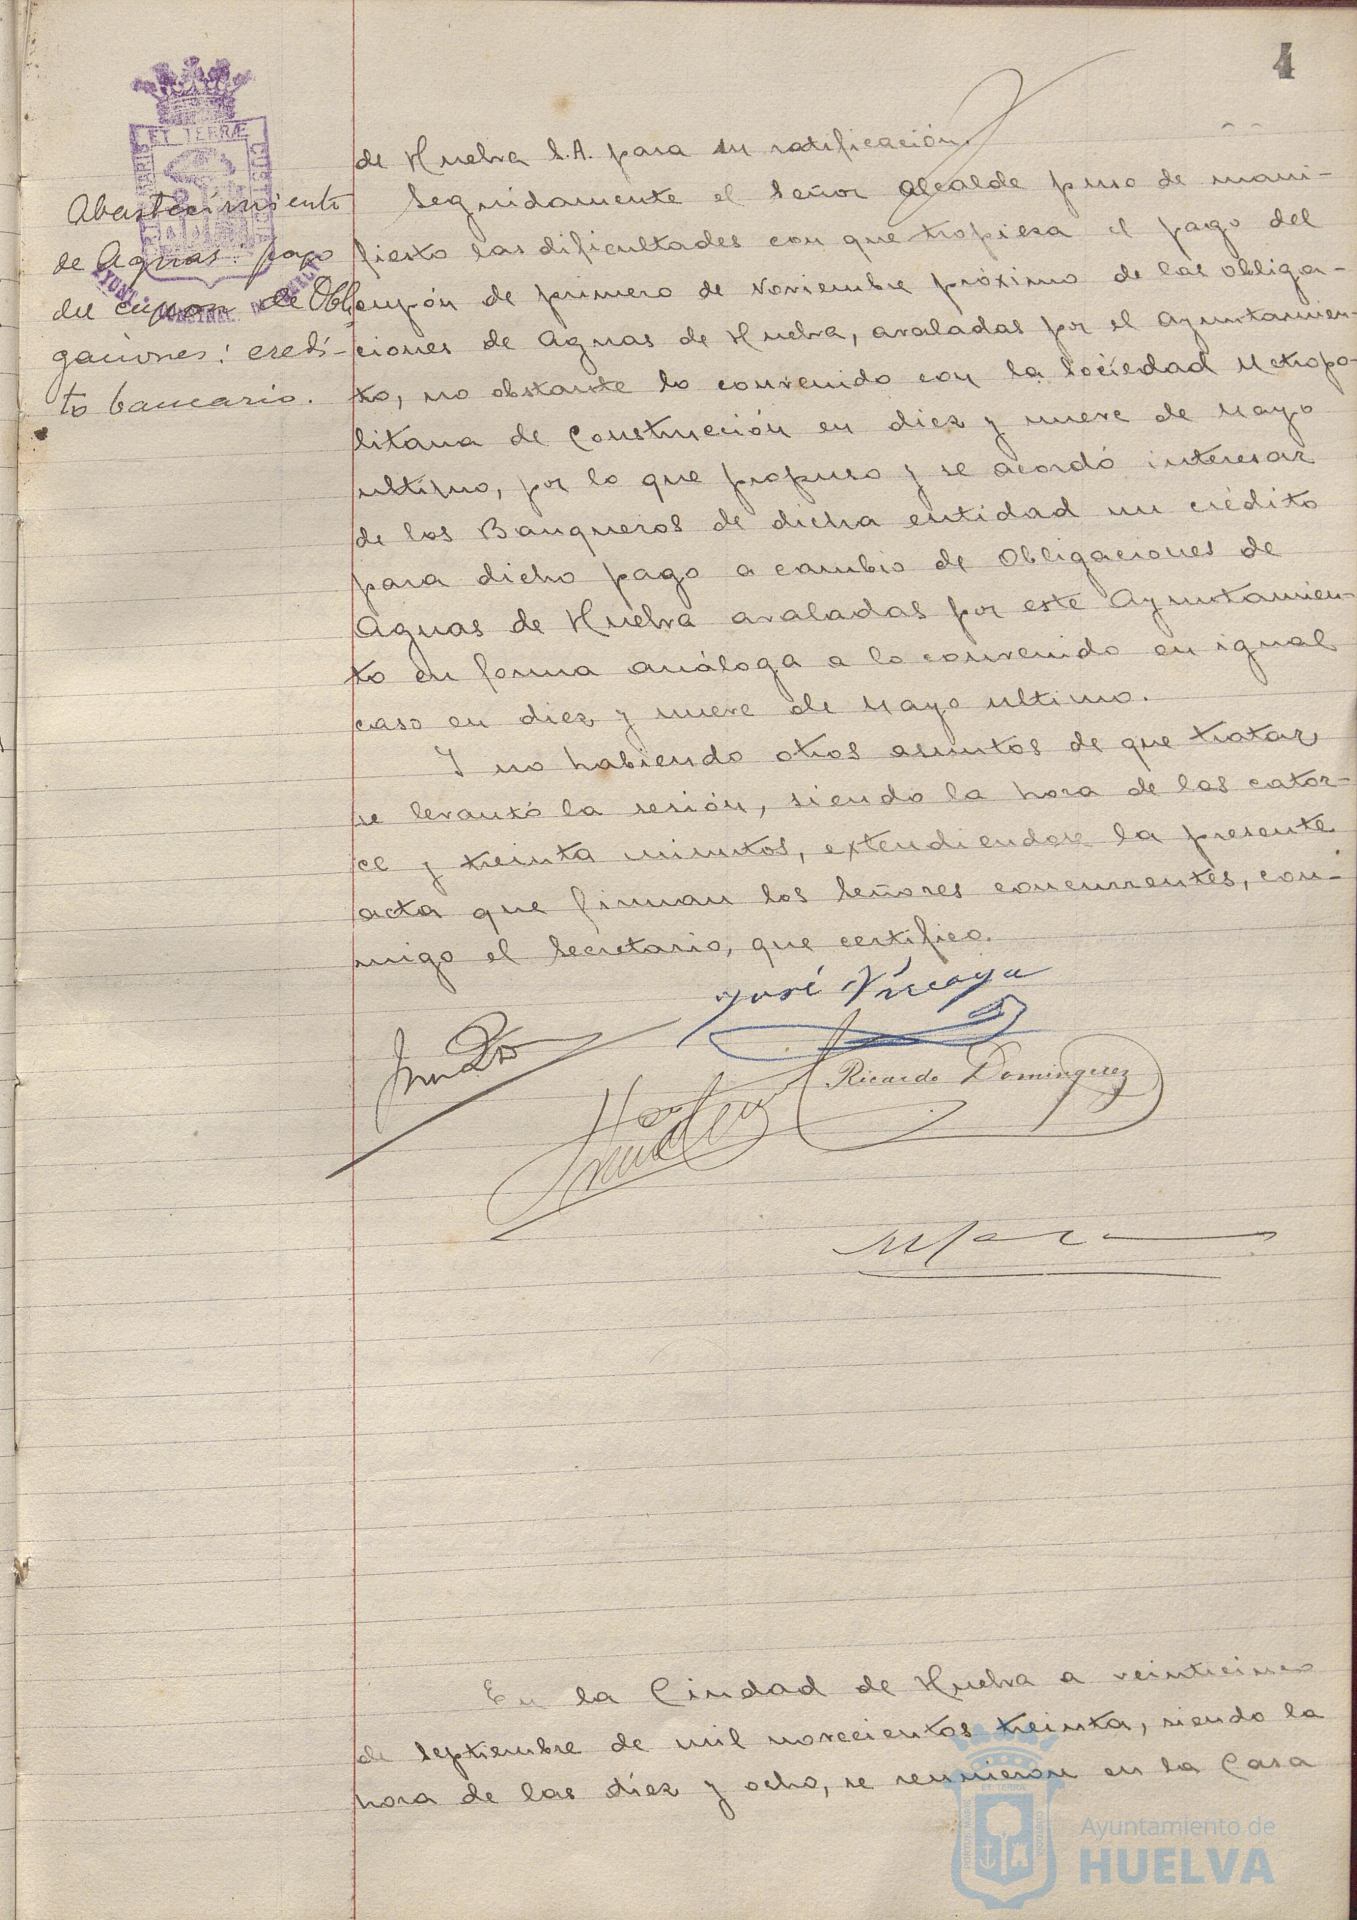 4
PORTUS MARIS ET TERRÆ CUSTODIA
Abastecimiento
de Aguas: pago
del cupon de Obli
gaciones: credi-
to bancario.
de Huelva S.A. para su ratificación.
Seguidamente el Señor Alcalde puso de mani-
fiesto las dificultades con que tropieza el pago del
cupón de primero de Noviembre próximo de las obliga-
ciones de Aguas de Huelva, avaladas por el Ayuntamien-
to, no obstante lo convenido con la Sociedad Metropo-
litana de Construcción en diez y nueve de Mayo
ultimo, por lo que propuso y se acordó interesar
de los Banqueros de dicha entidad un crédito
para dicho pago a cambio de Obligaciones de
Aguas de Huelva avaladas por este Ayuntamien-
to en forma análoga a lo convenido en igual
caso en diez y nueve de Mayo ultimo.
Y no habiendo otros asuntos de que tratar,
se levantó la sesión, siendo la hora de las cator-
ce y treinta minutos, extendiendose la presente
acta que firman los Señores concurrentes, con-
migo el Secretario, que certifico.
José Vizcaya
Ricardo Dominguez
En la Ciudad de Huelva a veinticinco
de Septiembre de mil novecientos treinta, siendo la
hora de las diez y ocho, se reunieron en la Casa
Ayuntamiento de
HUELVA